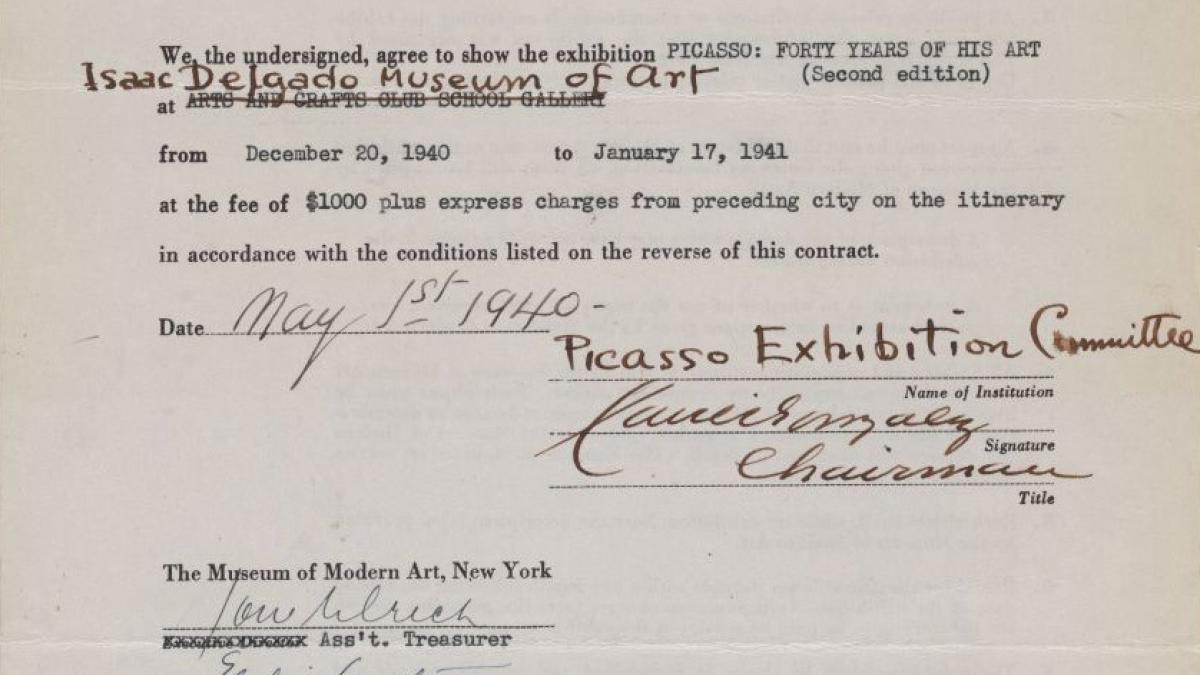 We, the undersigned, agree to show the exhibition PICASSO: FORTY YEARS OF HIS ART
(Second edition)
Isaac Delgado Museum of Art
at ARTS AND CRAFTS CLUB SCHOOL GALLERY
from December 20, 1940 to January 17, 1941
at the fee of $1000 plus express charges from preceding city on the itinerary
in accordance with the conditions listed on the reverse of this contract.
Date May 1st 1940 -
Picasso Exhibition Committee
Name of Institution
Signature
Chairman
Title
The Museum of Modern Art, New York
Ass't. Treasurer